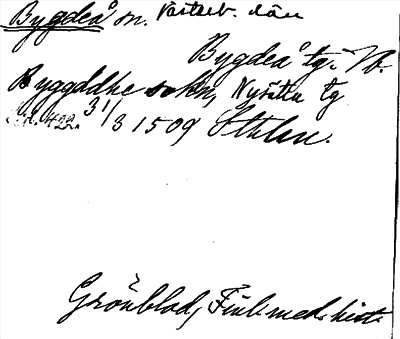 Bygdeå sn. Västerb. län
Bygdeå tg. Vb.
Byggdhe sokn, Nysätra tg
31/3 1509 Sthlm.
Grönblad, Finl. med. hist.